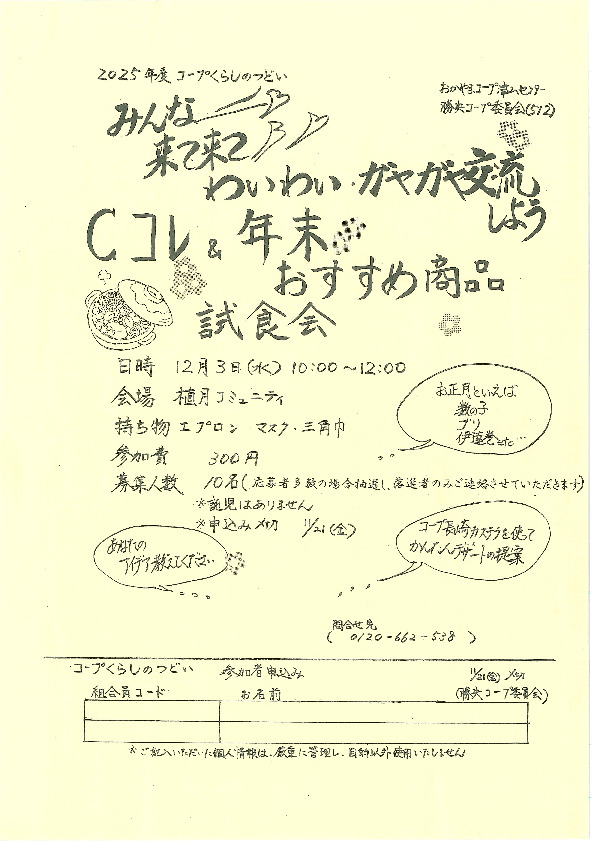 2025年度 コープくらしのつどい
おかやまコープ津山センター
勝央コープ委員会(512)
みんな
来て来て
わいわい・ガヤガヤ交流
しよう
Cコレ&年末
おすすめ商品
試食会
日時 12月3日(水) 10:00~12:00
会場 植月コミュニティ
持ち物 エプロン マスク・三角巾
参加費 300円
募集人数 10名(応募者多数の場合抽選し、落選者のみご連絡させていただきます)
※託児はありません
※申込み〆切 11/21(金)
お正月といえば
数の子
ブリ
伊達巻とか…
あなたの
アイデア教えてください
コープ長崎カステラを使って
かんたんデザートの提案
問合せ先
( 0120-662-538 )
コープくらしのつどい 参加者申込み 11/21(金) 〆切
組合員コード お名前 (勝央コープ委員会)
※ご記入いただいた個人情報は、厳重に管理し、目的以外使用いたしません